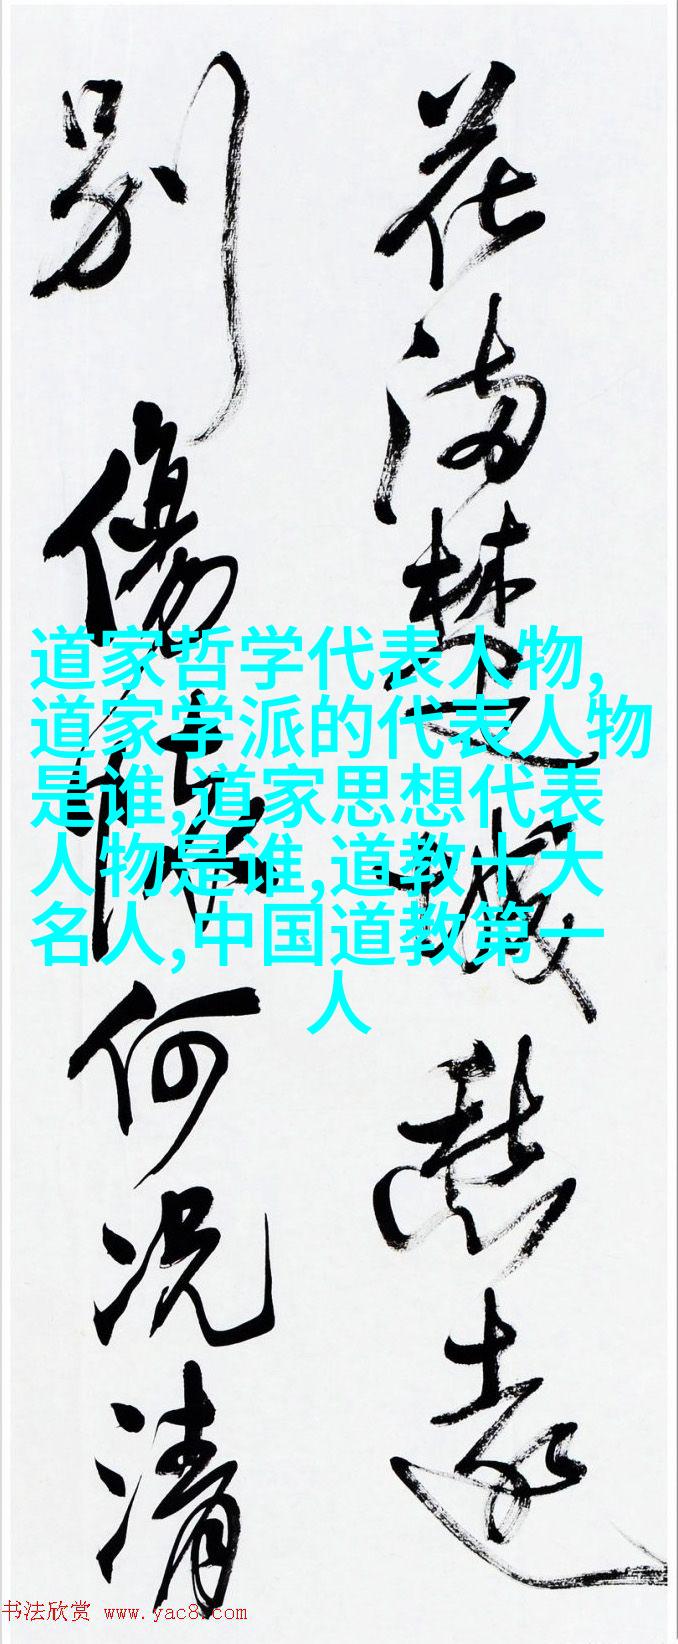 花满楚城愁遠
别傷懷何况清
道家哲学代表人物,
道家学派的代表人物
是谁,道家思想代表
人物是谁,道教十大
名人,中国道教第一
人
书法欣赏 www.yac8.com